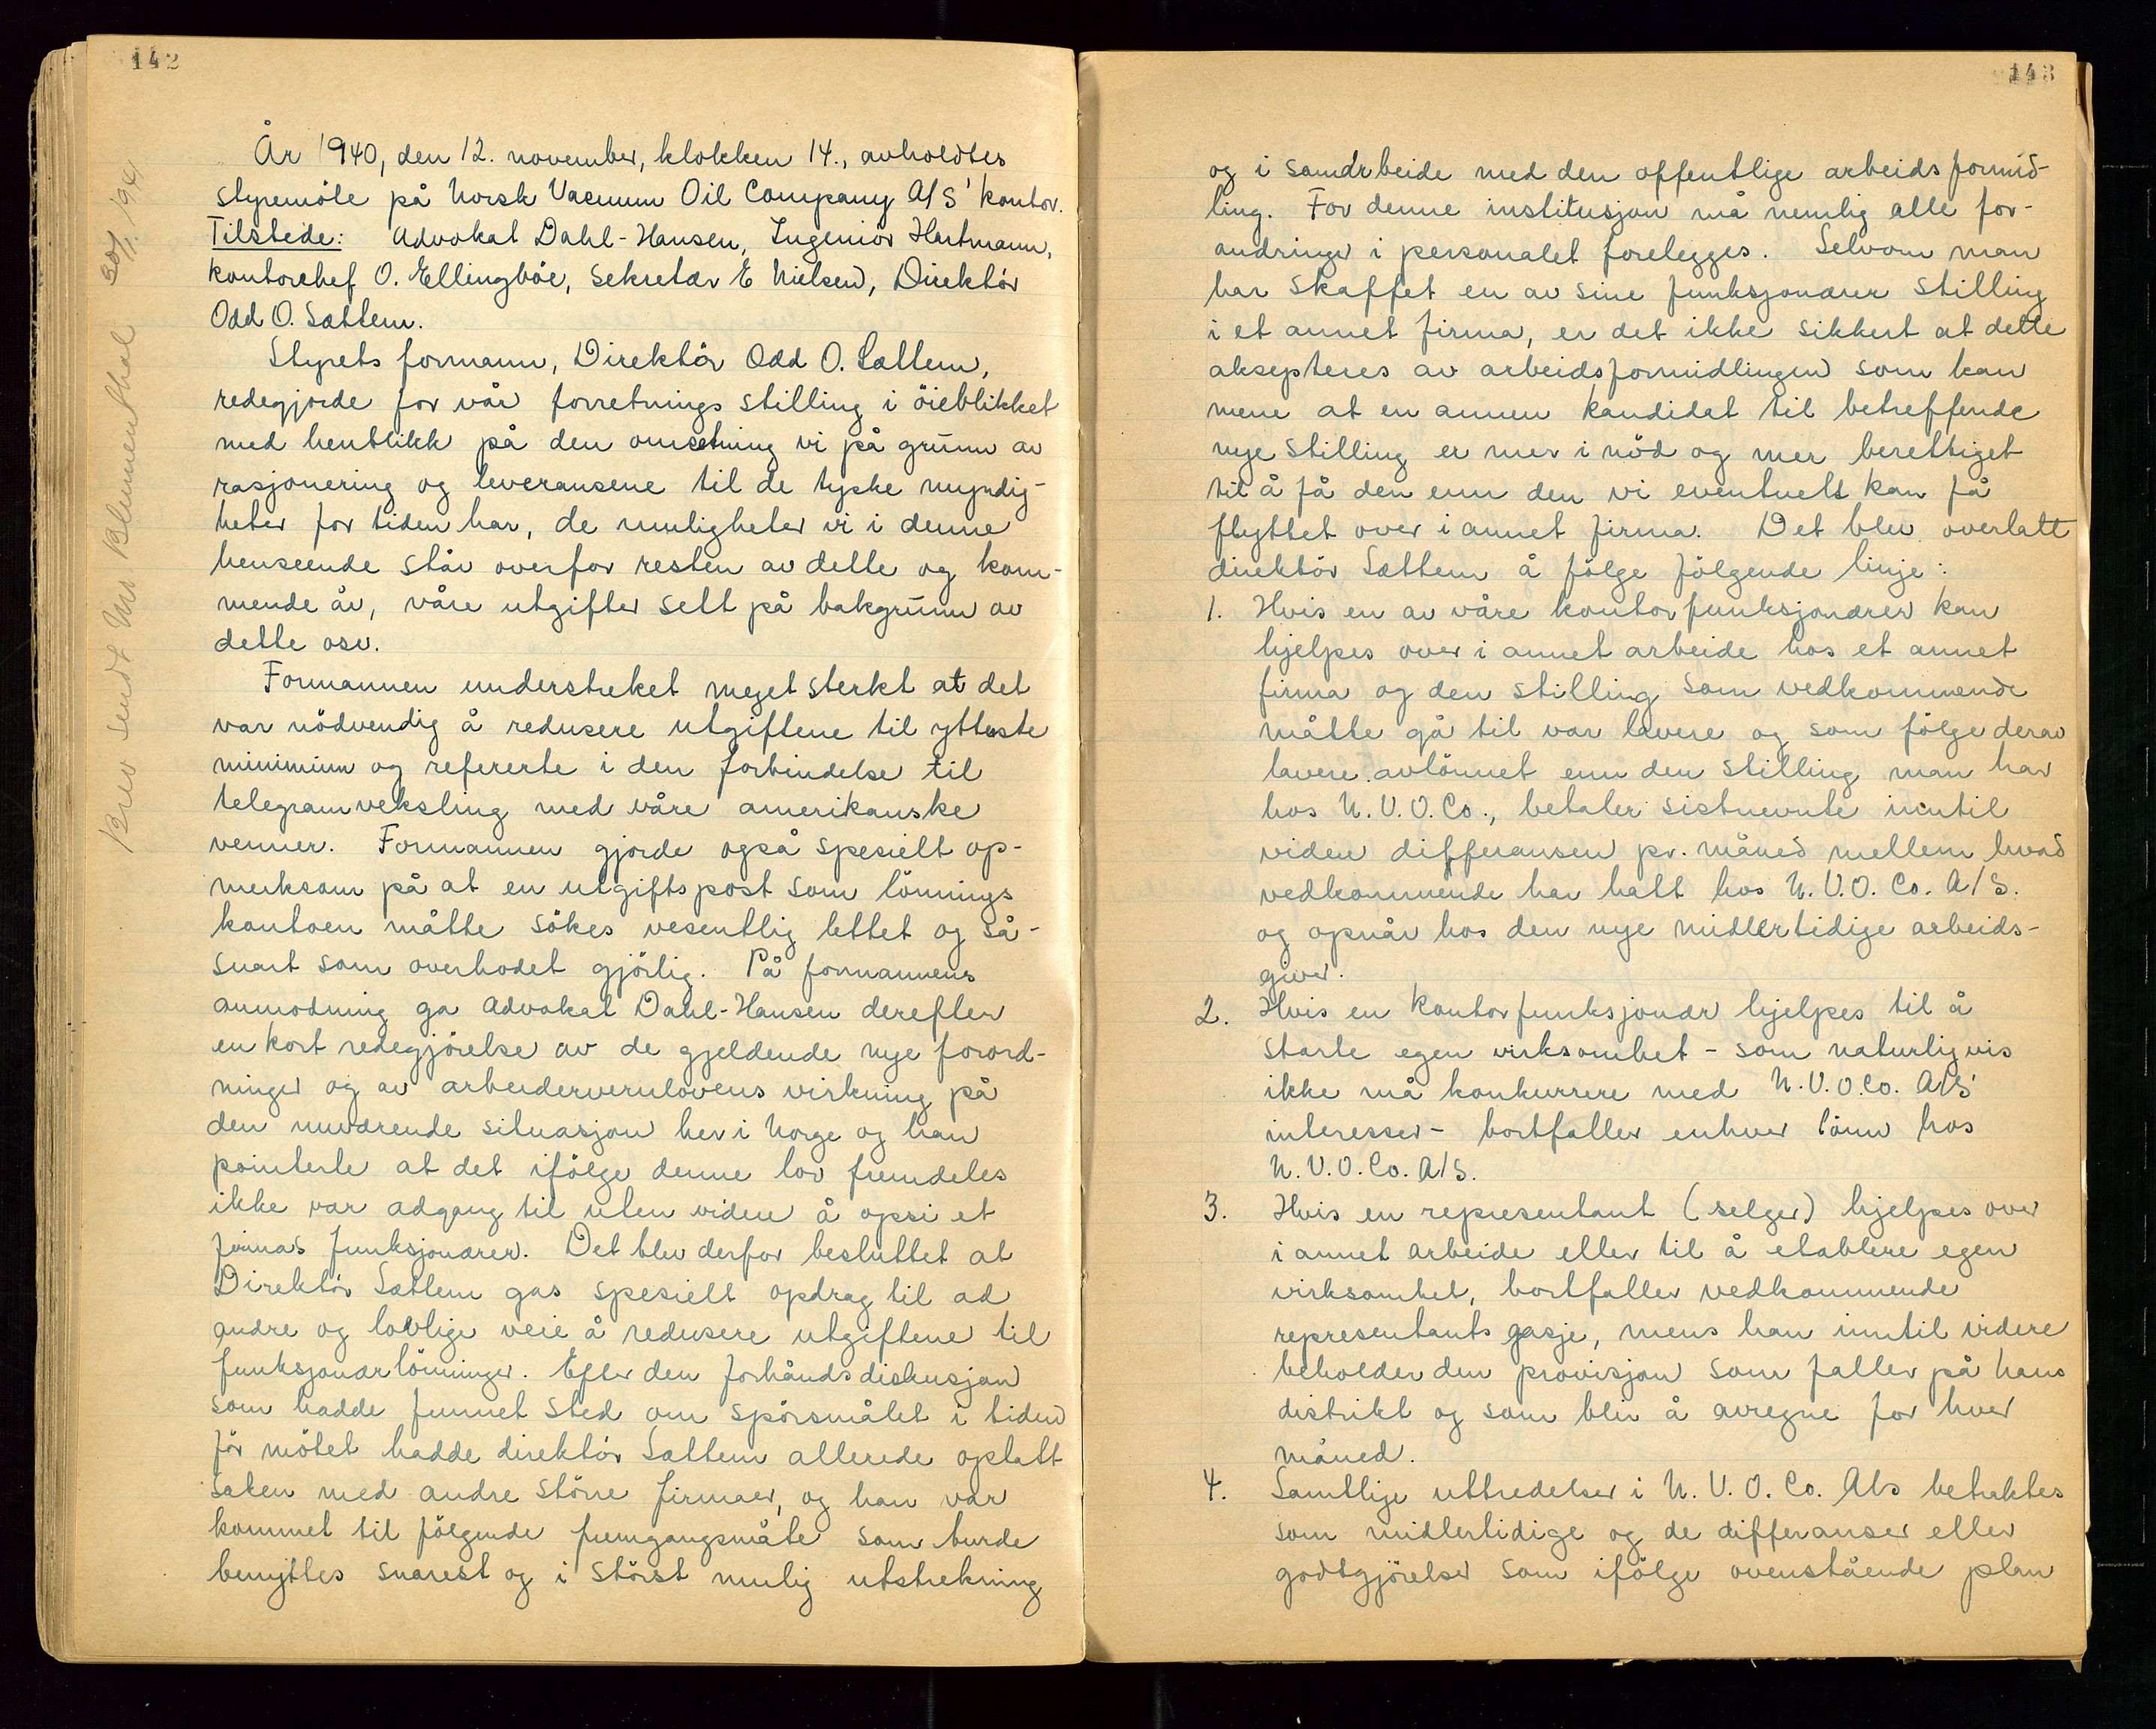 142
År 1940, den 12. november, klokken 14., avholdtes
styremöte på Norsk Vacuum Oil Company A/S' kontor.
Tilstede: Advokat Dahl-Hansen, Ingeniör Hartmann,
kontorchef O. Ellingböe, Sekretær E Nielsen, Direktör
Odd O. Sættem.
Styrets formann, Direktör Odd O. Sættem,
redegjorde for vår forretnings stilling i öieblikket
med henblikk på den omsetning vi på grunn av
rasjonering og leveransene til de tyske myndig-
heter for tiden har, de muligheter vi i denne
henseende står overfor resten av dette og kom-
mende år, våre utgifter sett på bakgrunn av
dette osv.
Formannen understreket meget sterkt at det
var nödvendig å redusere utgiftene til ytterste
minimum og refererte i den forbindelse til
telegramveksling med våre amerikanske
venner. Formannen gjorde også spesielt op-
merksom på at en utgiftspost som lönnings
kontoen måtte sökes vesentlig lettet og så-
snart som overhodet gjörlig. På formannens
anmodning ga Advokat Dahl-Hansen derefter
en kort redegjörelse av de gjeldende nye forord-
ninger og av arbeidervernlovens virkning på
den nuværende situasjon her i Norge og han
pointerte at det ifölge denne lov fremdeles
ikke var adgang til uten videre å opsi et
firmas funksjonærer. Det blev derfor besluttet at
Direktör Sættem gas spesielt opdrag til ad
andre og lovlige veie å redusere utgiftene til
funksjonærlönninger. Efter den forhåndsdiskusjon
som hadde funnet sted om spörsmålet i tiden
för mötet hadde direktör Sættem allerede optatt
saken med andre större firmaer, og han var
kommet til fölgende fremgangsmåte som burde
benyttes snarest og i störst mulig utstrekning
Brev sendt Mr Blumenthal 30/1 194
143
og i samarbeide med den offentlige arbeidsformid-
ling. For denne institusjon må nemlig alle for-
andringer i personalet forelegges. Selvom man
har skaffet en av sine funksjonærer stilling
i et annet firma, er det ikke sikkert at dette
aksepteres av arbeidsformidlingen som kan
mene at en annen kandidat til betreffende
nye stilling er mer i nöd og mer berettiget
til å få den enn den vi eventuelt kan få
flyttet over i annet firma. Det blev overlatt
direktör Sættem å fölge fölgende linje:
1. Hvis en av våre kontorfunksjonærer kan
hjelpes over i annet arbeide hos et annet
firma og den stilling som vedkommende
måtte gå til var lavere og som fölge derav
lavere avlönnet enn den stilling man har
hos N.V.O.Co., betaler sistnevnte inntil
videre differansen pr. måned mellem hvad
vedkommende har hatt hos N.V.O. Co. A/S.
og opnår hos den nye midlertidige arbeids-
giver.
2. Hvis en kontorfunksjonær hjelpes til å
starte egen virksomhet - som naturligvis
ikke må konkurrere med N.V.O.Co. A/S'
interesser - bortfaller enhver lönn hos
N.V.O.Co. A/S.
3. Hvis en representant (selger) hjelpes over
i annet arbeide eller til å etablere egen
virksomhet, bortfaller vedkommende
representants gasje, mens han inntil videre
beholder den provisjon som faller på hans
distrikt og som blir å avregne for hver
måned.
4. Samtlige uttredelser i N.V.O.Co. A/s betraktes
som midlertidige og de differanser eller
godtgjörelser som ifölge ovenstående plan